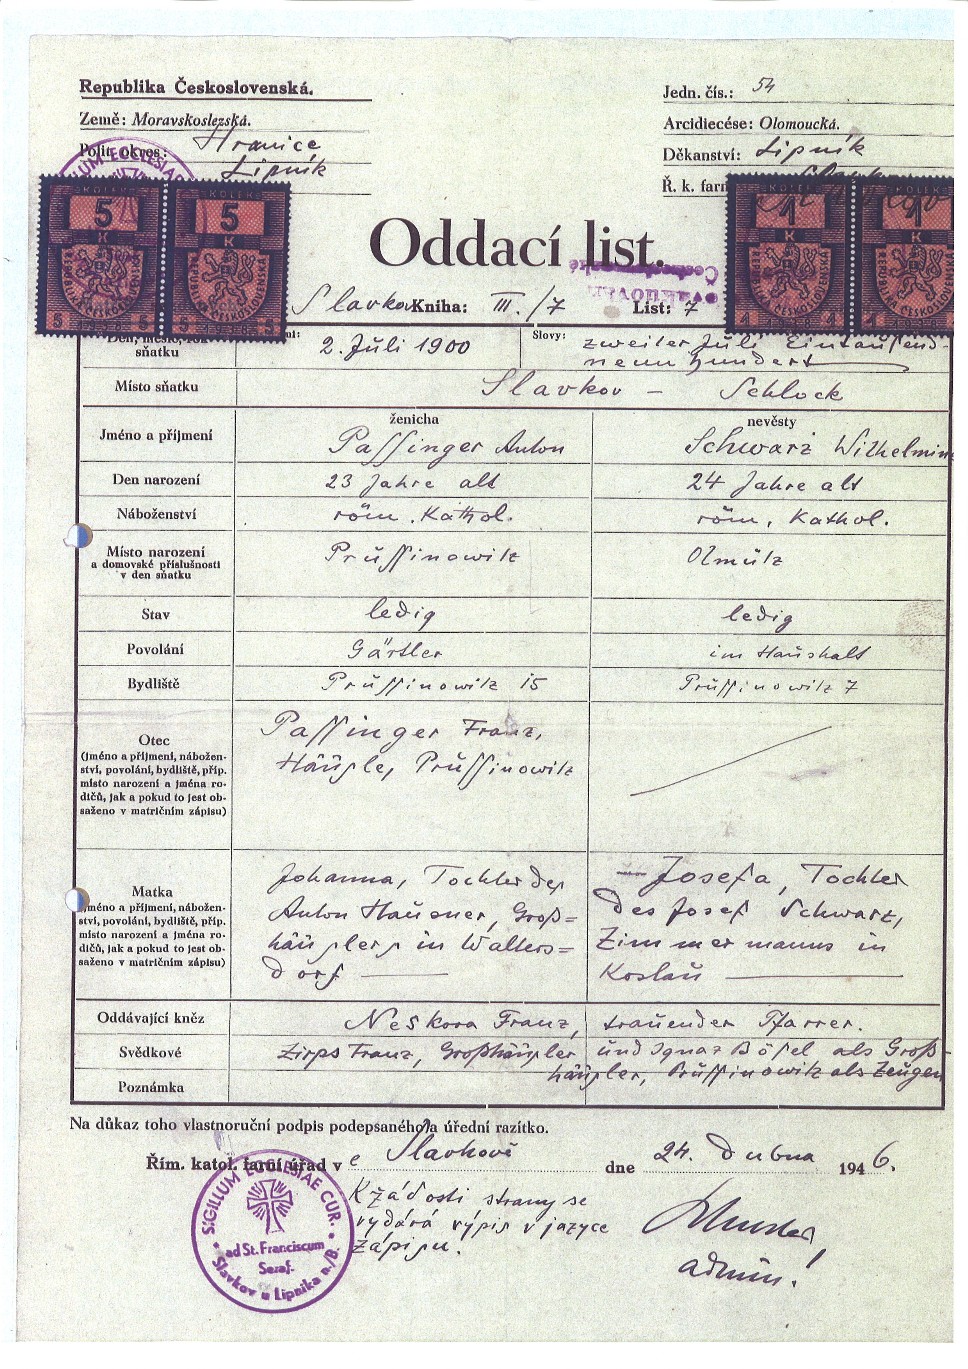 Republika Československá.
Země: Moravskoslezská.
Polit. okres: Hranice
Lipník
Jedn. čís.: 54
Arcidiecése: Olomoucká.
Děkanství: Lipník
Ř. k. farn
SIGILLUM ECCLESIAE
KOLEK 5 K REPUBLIKA ČESKOSLOVENSKÁ 5 5
KOLEK 5 K REPUBLIKA ČESKOSLOVENSKÁ 5 5
KOLEK 1 K REPUBLIKA ČESKOSLOVENSKÁ
KOLEK 1 K REPUBLIKA ČESKOSLOVENSKÁ
Oddací list.
Slavkov Kniha: III./7 List: 7
Den, měsíc, rok
sňatku
2. Juli 1900
Slovy: zweiter Juli Eintausend-
neunhundert
Místo sňatku Slavkov – Schlock
ženicha nevěsty
Jméno a příjmení Passinger Anton Schwarz Wilhelmine
Den narození 23 Jahre alt 24 Jahre alt
Náboženství röm. Kathol. röm. Kathol.
Místo narození
a domovské příslušnosti
v den sňatku
Prussinowitz Olmütz
Stav ledig ledig
Povolání Gärtler im Haushalt
Bydliště Prussinowitz 15 Prussinowitz 7
Otec
(jméno a příjmení, nábožen-
ství, povolání, bydliště, příp.
místo narození a jména ro-
dičů, jak a pokud to jest ob-
saženo v matričním zápisu)
Passinger Franz,
Häusler, Prussinowitz
Matka
(jméno a příjmení, nábožen-
ství, povolání, bydliště, příp.
místo narození a jména ro-
dičů, jak a pokud to jest ob-
saženo v matričním zápisu)
Johanna, Tochter des
Anton Hausner, Groß=
häuslers in Walters=
dorf
Josefa, Tochter
des Josef Schwarz,
Zimmermanns in
Koslau
Oddávající kněz Neskora Franz, trauender Pfarrer.
Svědkové Zirps Franz, Großhäusler und Ignaz Bösel als Groß-
häusler, Prussinowitz als Zeugen
Poznámka
Na důkaz toho vlastnoruční podpis podepsaného a úřední razítko.
Řím. katol. farní úřad ve Slavkově dne 24. dubna 1946.
K žádosti strany se
vydává výpis v jazyce
zápisu.
admin!
SIGILLUM ECCLESIAE CUR.
ad St. Franciscum
Seraf.
Slavkov u Lipníka n./B.